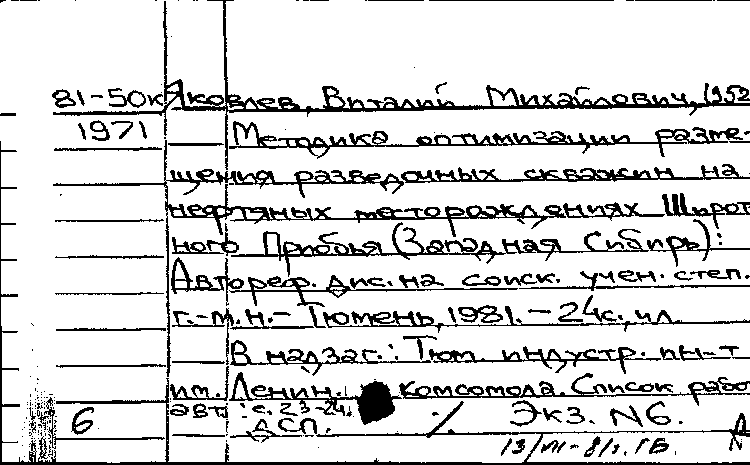 81-50к Яковлев, Виталий Михайлович, 1952
1971 Методика оптимизации разме-
щения разведочных скважин на
нефтяных месторождениях Широт
ного Приобья (Западная Сибирь):
Автореф. дис. на соиск. учен. степ.
г.-м.н. - Тюмень, 1981. - 24с., ил.
В надзаг.: Тюм. индустр. ин-т
им. Ленин. комсомола. Список рабо
6 авт.: с. 23-24. ./. Экз. N6.
ДСП.
13/VII-81г. ГБ.